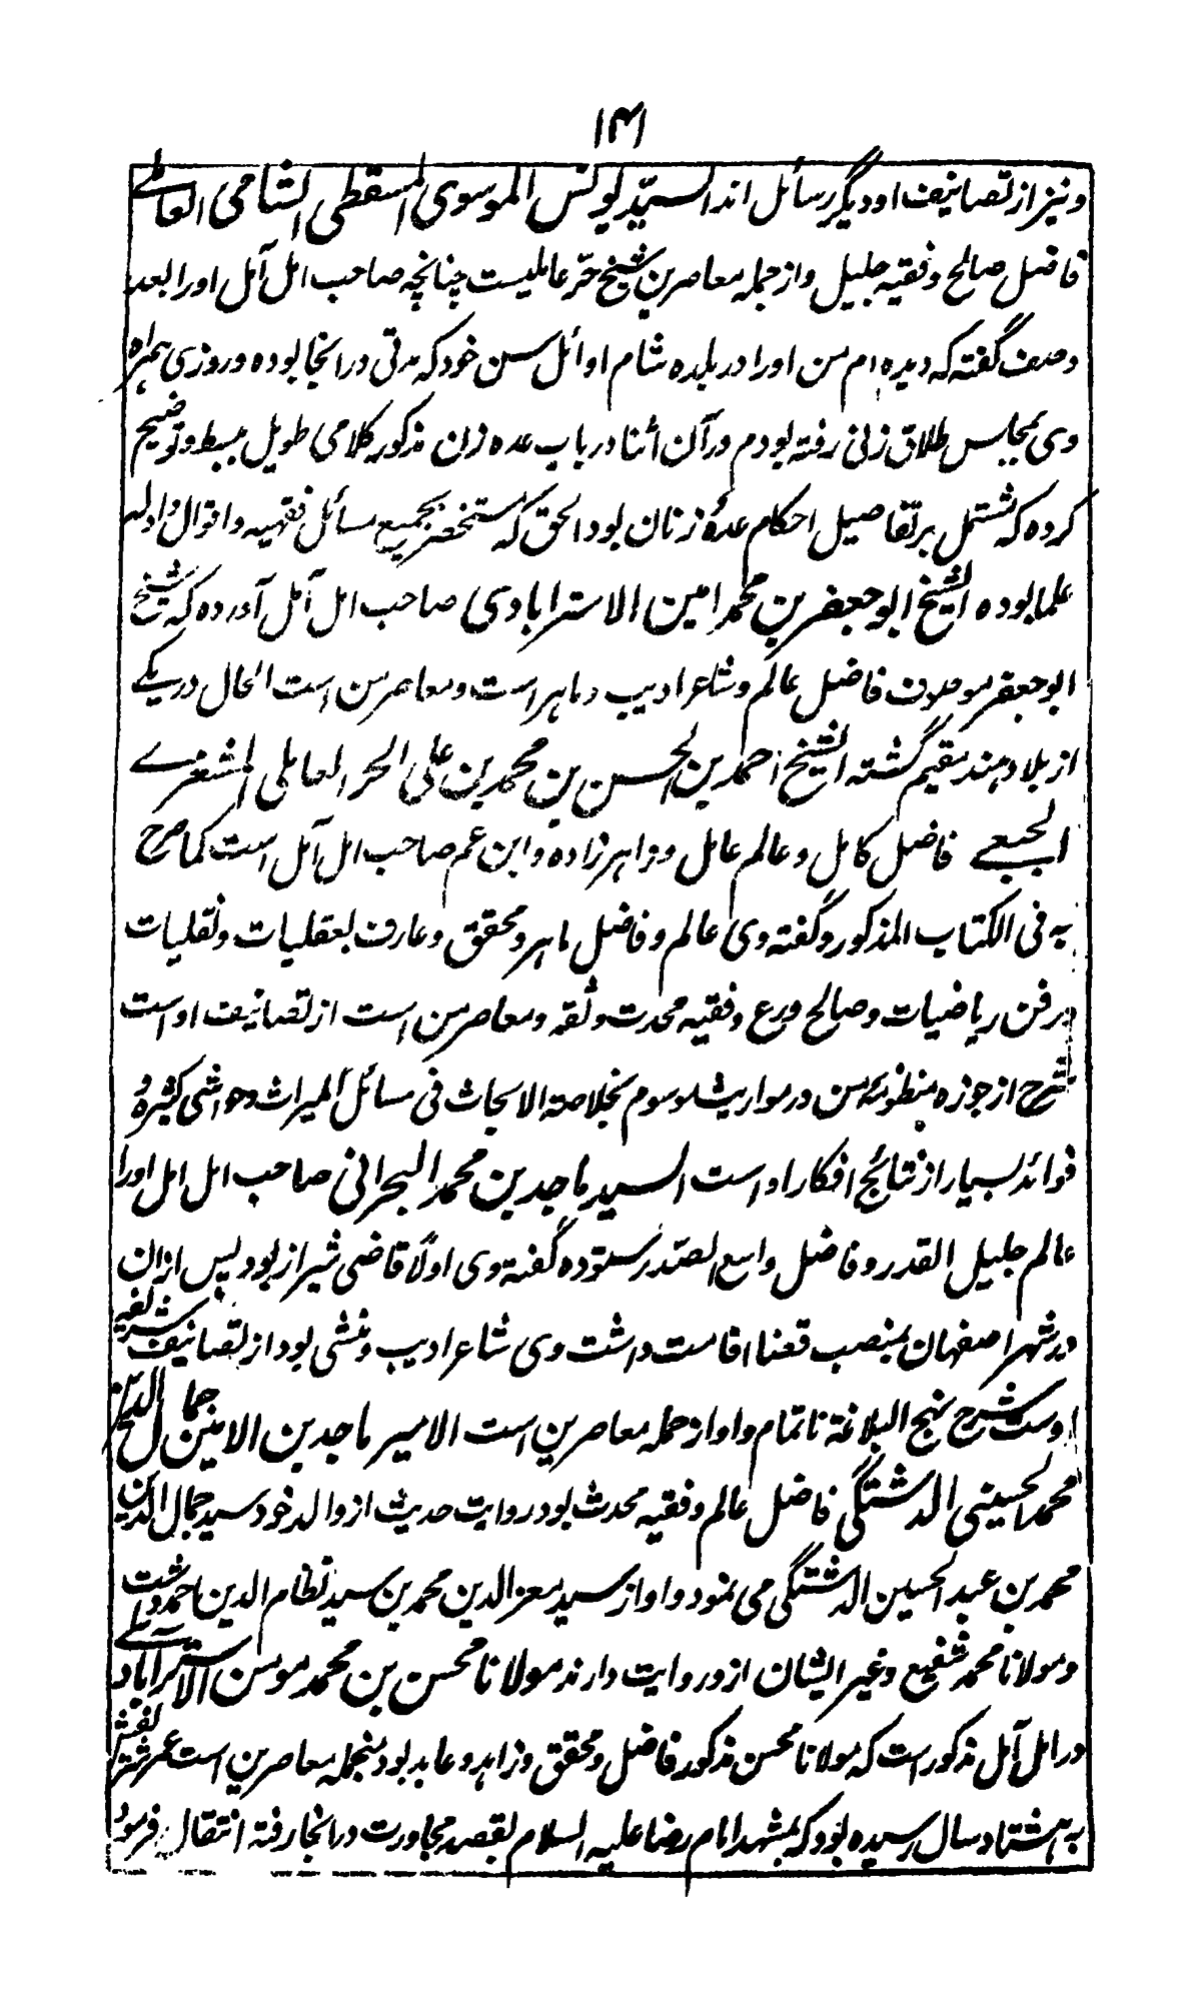 ۱۴۱
و نیز از تصانیف او دیگر رسائل اند السید یونس الموسوی السقطی الشامی العاملے
فاضل صالح و فقیه جلیل و از جمله معاصرین شیخ حر عاملیست چنانچه صاحب امل آمل او را بعد
وصف گفته که دیده ام من او را در بلده شام اوائل سن خود که مدتی در انجا بوده و روزی همراه
وی بمجلس طلاق زنی رفته بودم در آن اثنا در باب عده زن مذکور کلامی طویل ببسط و توضیح
کرده که مشتمل بر تفاصیل احکام عدهٔ زنان بود الحق که مستحضر بجمیع مسائل فقهیه و اقوال و ادله
علما بوده الشیخ ابو جعفر بن محمد امین الاسترابادی صاحب امل آمل آورده که شیخ
ابو جعفر موصوف فاضل عالم و شاعر ادیب و ماهر است و معاصر من است الحال در یکے
از بلاد هند مقیم گشته الشیخ احمد بن الحسن بن محمد بن علی الحر العاملی المشغرے
الجبعے فاضل کامل و عالم عامل و زاهر زاده و ابن عم صاحب امل آمل است کما صرح
به فی الکتاب المذکور و گفته وی عالم و فاضل ماهر و محقق و عارف بعقلیات و نقلیات
در فن ریاضیات و صالح ورع و فقیه محدث و ثقه و معاصر من است از تصانیف او است
شرح ارجوزه منظومهٔ من در مواریث موسوم بخلاصة الابحاث فی مسائل المیراث و حواشی کثیره و
فوائد بسیار از نتائج افکار او است السید ماجد بن محمد البحرانی صاحب امل امل او را
عالم جلیل القدر و فاضل واسع الصدر ستوده گفته وی اولاً قاضی شیراز بود پس ازان
در شهر اصفهان بمنصب قضا اقامت داشت وی شاعر ادیب و منشی بود از تصانیف شریفه
اوست شرح نهج البلاغة ناتمام و او از جمله معاصرین است الامیر ماجد بن الامیر جمال الدین
محمد الحسینی الدشتگی فاضل عالم و فقیه محدث بود روایت حدیث از والد خود سید جمال الدین
محمد بن عبد الحسین الدشتگی می نمود و او از سید معز الدین محمد بن سید نظام الدین احمد داشت
و مولانا محمد شفیع و غیر ایشان از و روایت دارند مولانا محسن بن محمد مومن الاسترآبادی
در امل آمل مذکور است که مولانا محسن مذکور فاضل و محقق و زاهد و عابد بود منجمله معاصرین است عمر شریفش
به هشتاد سال رسیده بود که بمشهد امام رضا علیه السلام بقصد مجاورت در انجا رفته انتقال فرمود